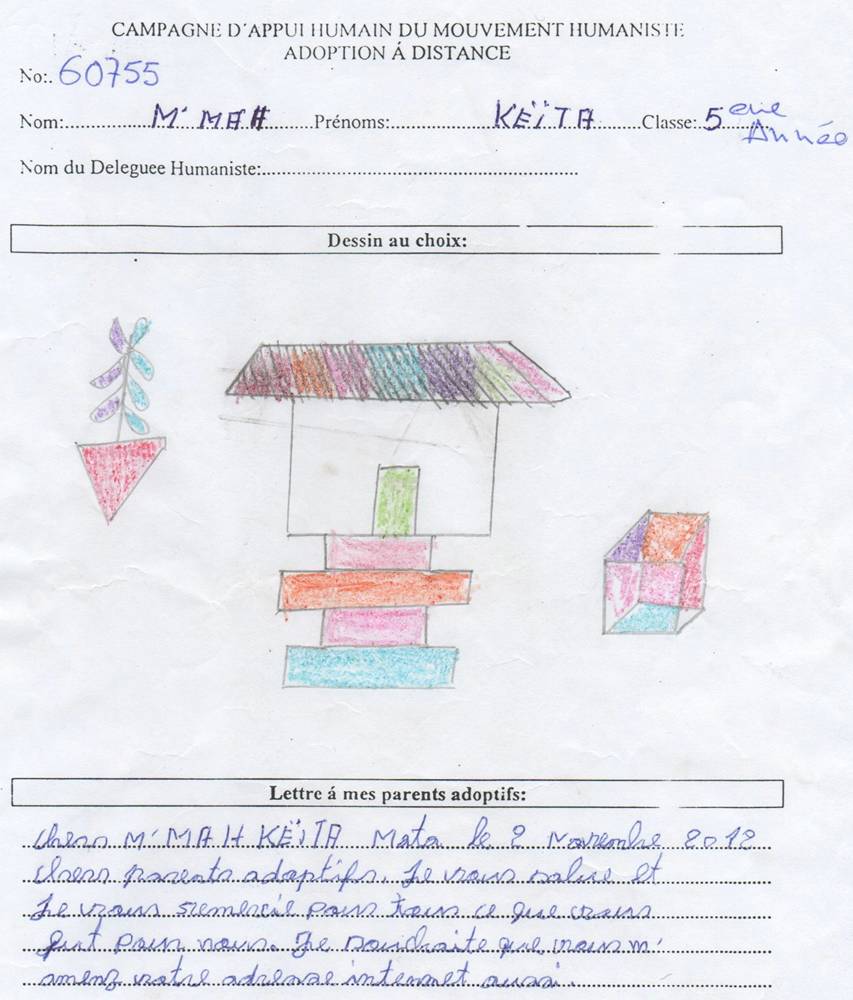 CAMPAGNE D'APPUI HUMAIN DU MOUVEMENT HUMANISTE
ADOPTION Á DISTANCE
No:. 60755
Nom: M'MAH Prénoms: KEÏTA Classe: 5 eme Année
Nom du Deleguee Humaniste:
Dessin au choix:
Lettre á mes parents adoptifs:
chers M'MAH KEÏTA Mata le 2 Novembre 2012
chers parents adaptifs. Je vous salue et
Je vous remercie pour tous ce que vous
fait pour nous. Je souhaite que vous m'
amenz votre adresse internet aussi.